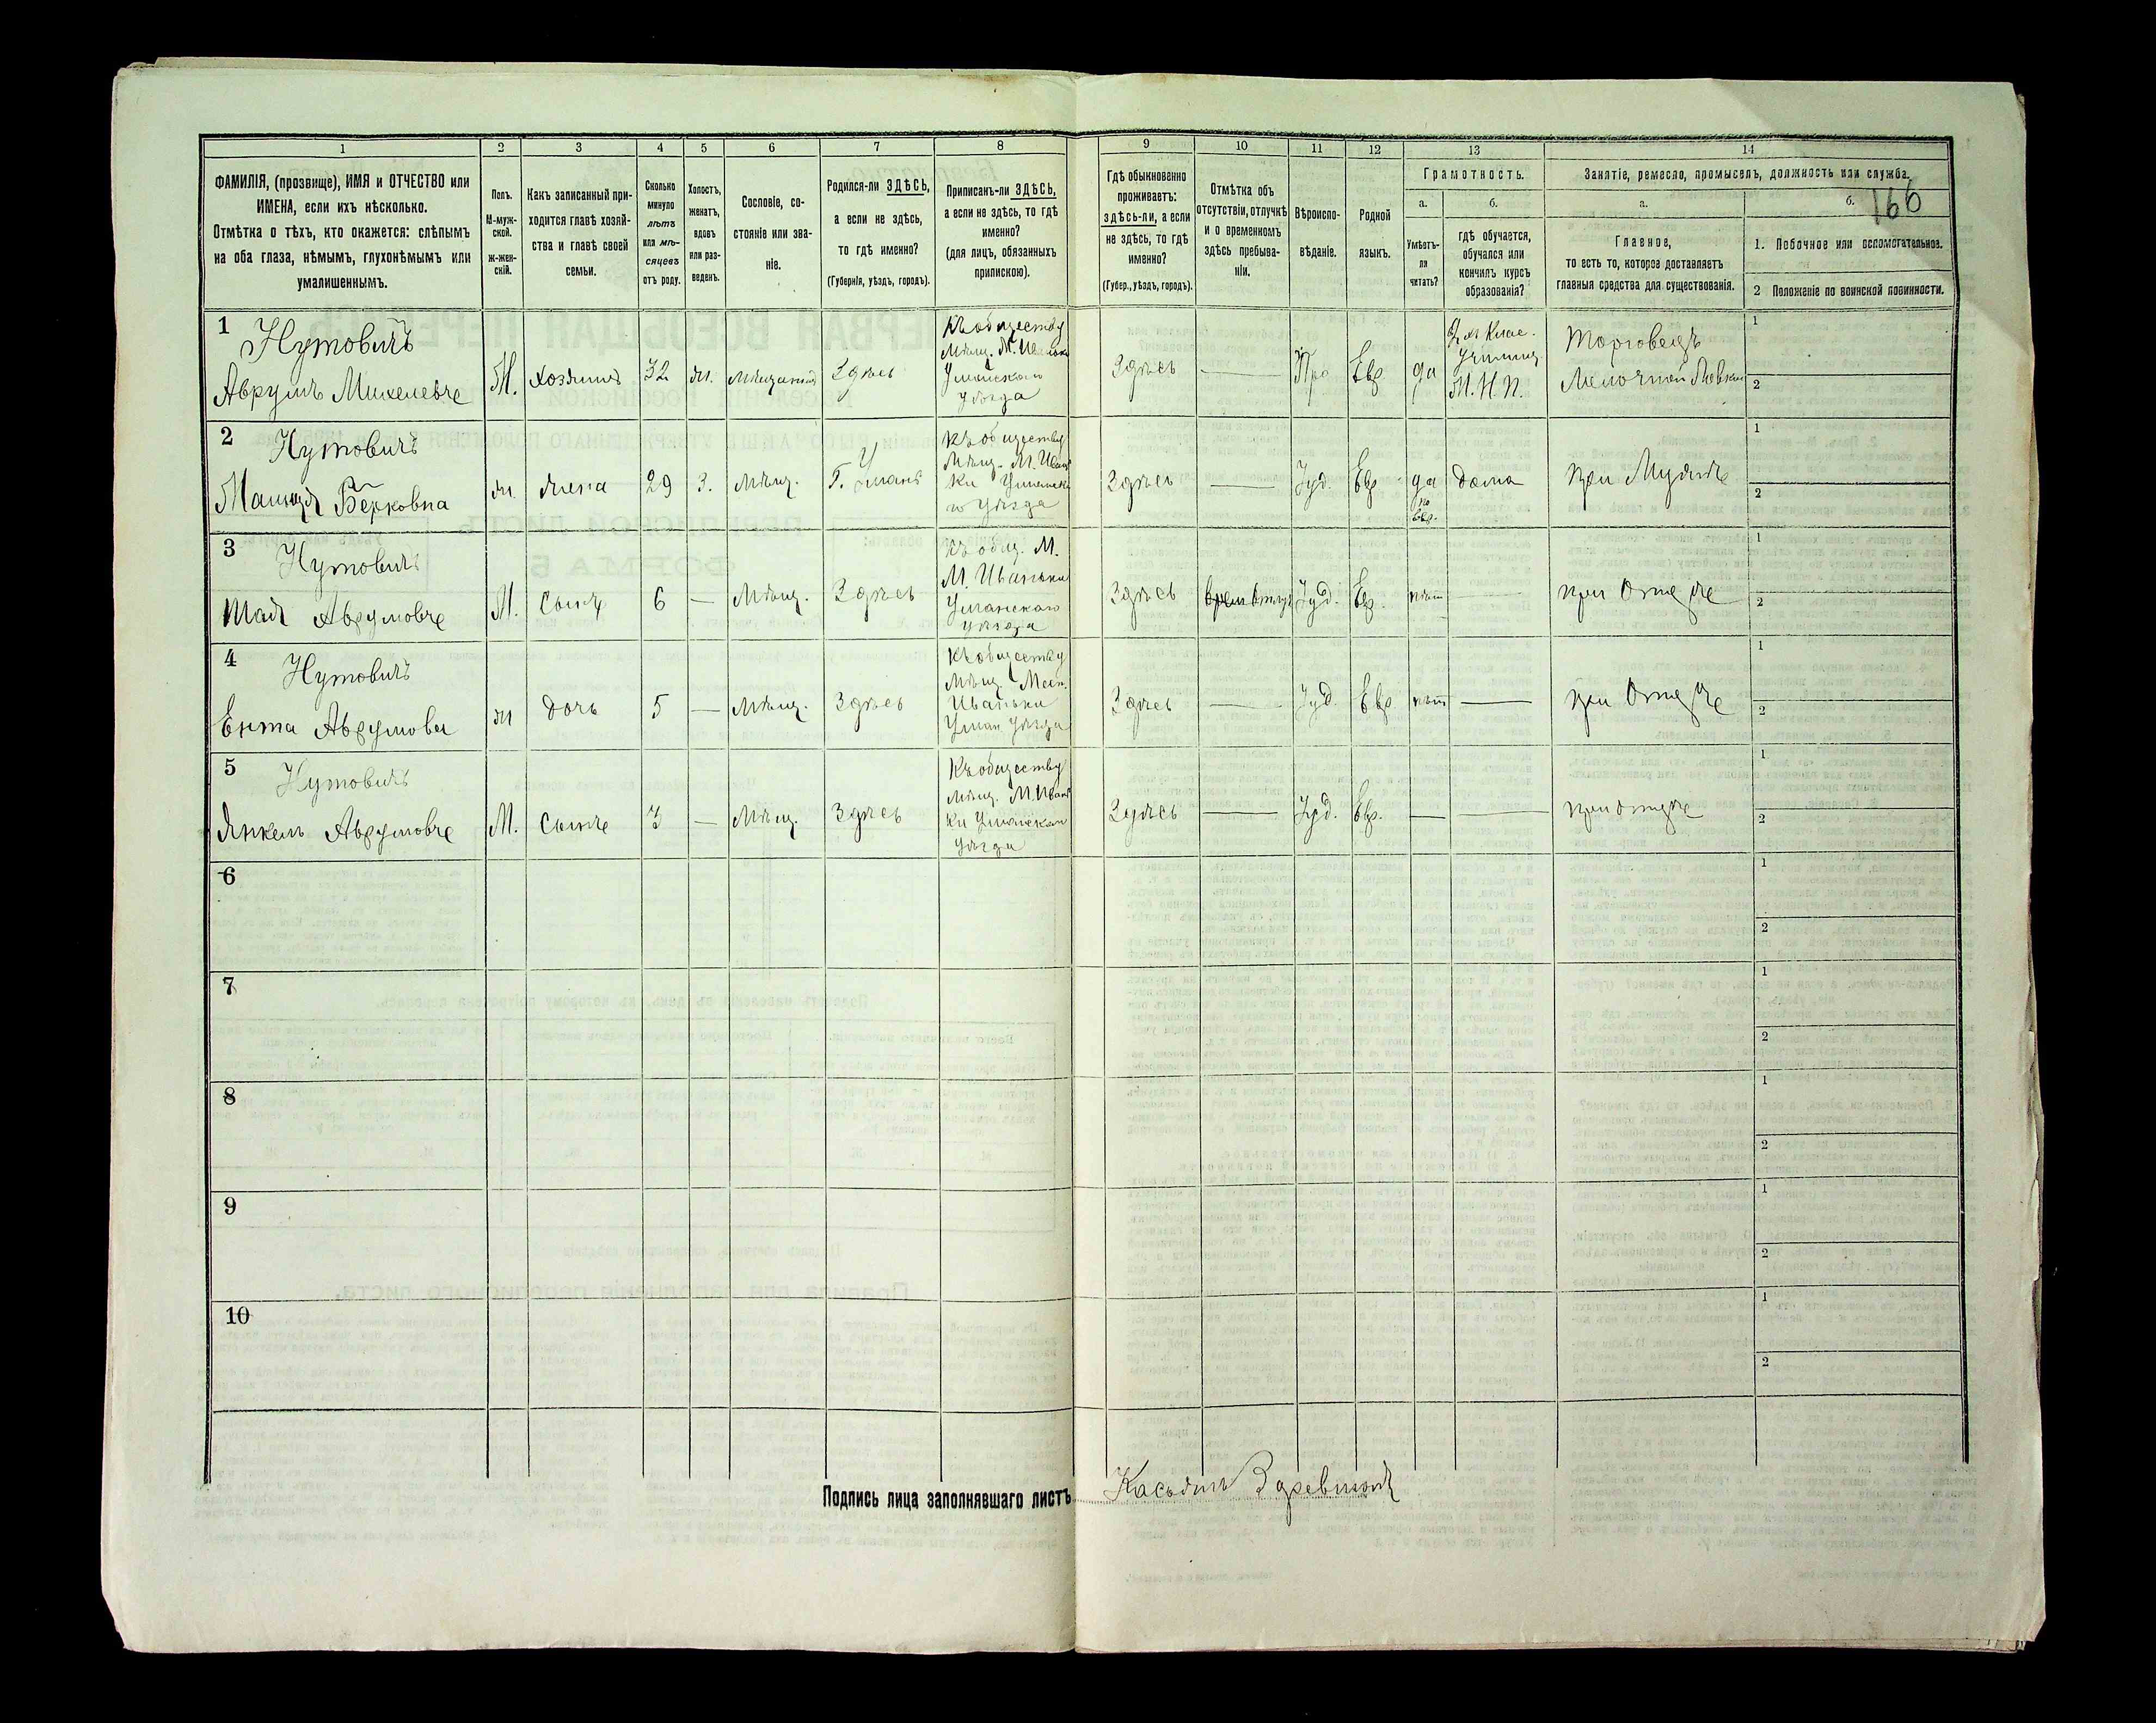 1 2 3 4 5 6 7 8 9 10 11 12 13 14
166
ФАМИЛІЯ, (прозвище), ИМЯ и ОТЧЕСТВО или
ИМЕНА, если ихъ нѣсколько.
Отмѣтка о тѣхъ, кто окажется: слѣпымъ
на оба глаза, нѣмымъ, глухонѣмымъ или
умалишеннымъ.
Полъ.
М-муж-
ской.
ж-жен-
скій.
Какъ записанный при-
ходится главѣ хозяй-
ства и главѣ своей
семьи.
Сколько
минуло
лѣтъ
или мѣ-
сяцевъ
отъ роду.
Холостъ,
женатъ,
вдовъ
или раз-
веденъ.
Сословіе, со-
стояніе или зва-
ніе.
Родился-ли ЗДѢСЬ,
а если не здѣсь,
то гдѣ именно?
(Губернія, уѣздъ, городъ).
Приписанъ-ли ЗДѢСЬ,
а если не здѣсь, то гдѣ
именно?
(для лицъ, обязанныхъ
припискою).
Гдѣ обыкновенно
проживаетъ:
здѣсь-ли, а если
не здѣсь, то гдѣ
именно?
(Губер., уѣздъ, городъ).
Отмѣтка объ
отсутствіи, отлучкѣ
и о временномъ
здѣсь пребыва-
ніи.
Вѣроиспо-
вѣданіе.
Родной
языкъ.
Грамотность.
а.
Умѣетъ-
ли
читать?
б.
гдѣ обучается,
обучался или
кончилъ курсъ
образованія?
Занятіе, ремесло, промыселъ, должность или служба.
а.
Главное,
то есть то, которое доставляетъ
главныя средства для существованія.
б.
1. Побочное или вспомогательное.
2 Положеніе по воинской повинности.
1
Нутовичъ
Аврумъ Михелевъ
М.
хозяинъ
32
ж.
мѣщанинъ
Здѣсь
Къ обществу
Мѣщ. М. Иваньки
Уманскаго
уѣзда
Здѣсь
—
Евр
да
2хъ клас.
училищ.
М. Н. П.
Торговецъ
Мелочной
1
2
2
Нутовичъ
Берковна
ж.
жена
29
З.
Мѣщ.
Г. Умань
Къ обществу
Мѣщ. М. Ивань
ки Уманска
го уѣзда
Здѣсь
—
Іуд.
Евр
да
по
евр.
дома
при Мужѣ
1
2
3
Нутовичъ
Аврумовъ
М.
Сынъ
6
—
Мѣщ.
Здѣсь
Къ общ. М.
М. Иваньки
Уманскаго
уѣзда
Здѣсь
Іуд.
Евр.
нѣт
—
при Отцѣ
1
2
4
Нутовичъ
Ента Аврумова
ж
дочь
5
—
Мѣщ.
Здѣсь
Къ обществу
Мѣщ. Мест.
Иваньки
Уман уѣзда
Здѣсь
—
Іуд.
Евр
нѣт
—
при Отцѣ
1
2
5
Нутовичъ
Янкель Аврумовъ
М.
Сынъ
3
—
Мѣщ.
Здѣсь
Къ обществу
Мѣщ. М. Ивань
ки Уманскаго
уѣзда
Здѣсь
—
Іуд.
Евр.
—
—
при отцѣ
1
2
6
1
2
7
1
2
8
1
2
9
1
2
10
1
2
Подпись лица заполнявшаго листъ